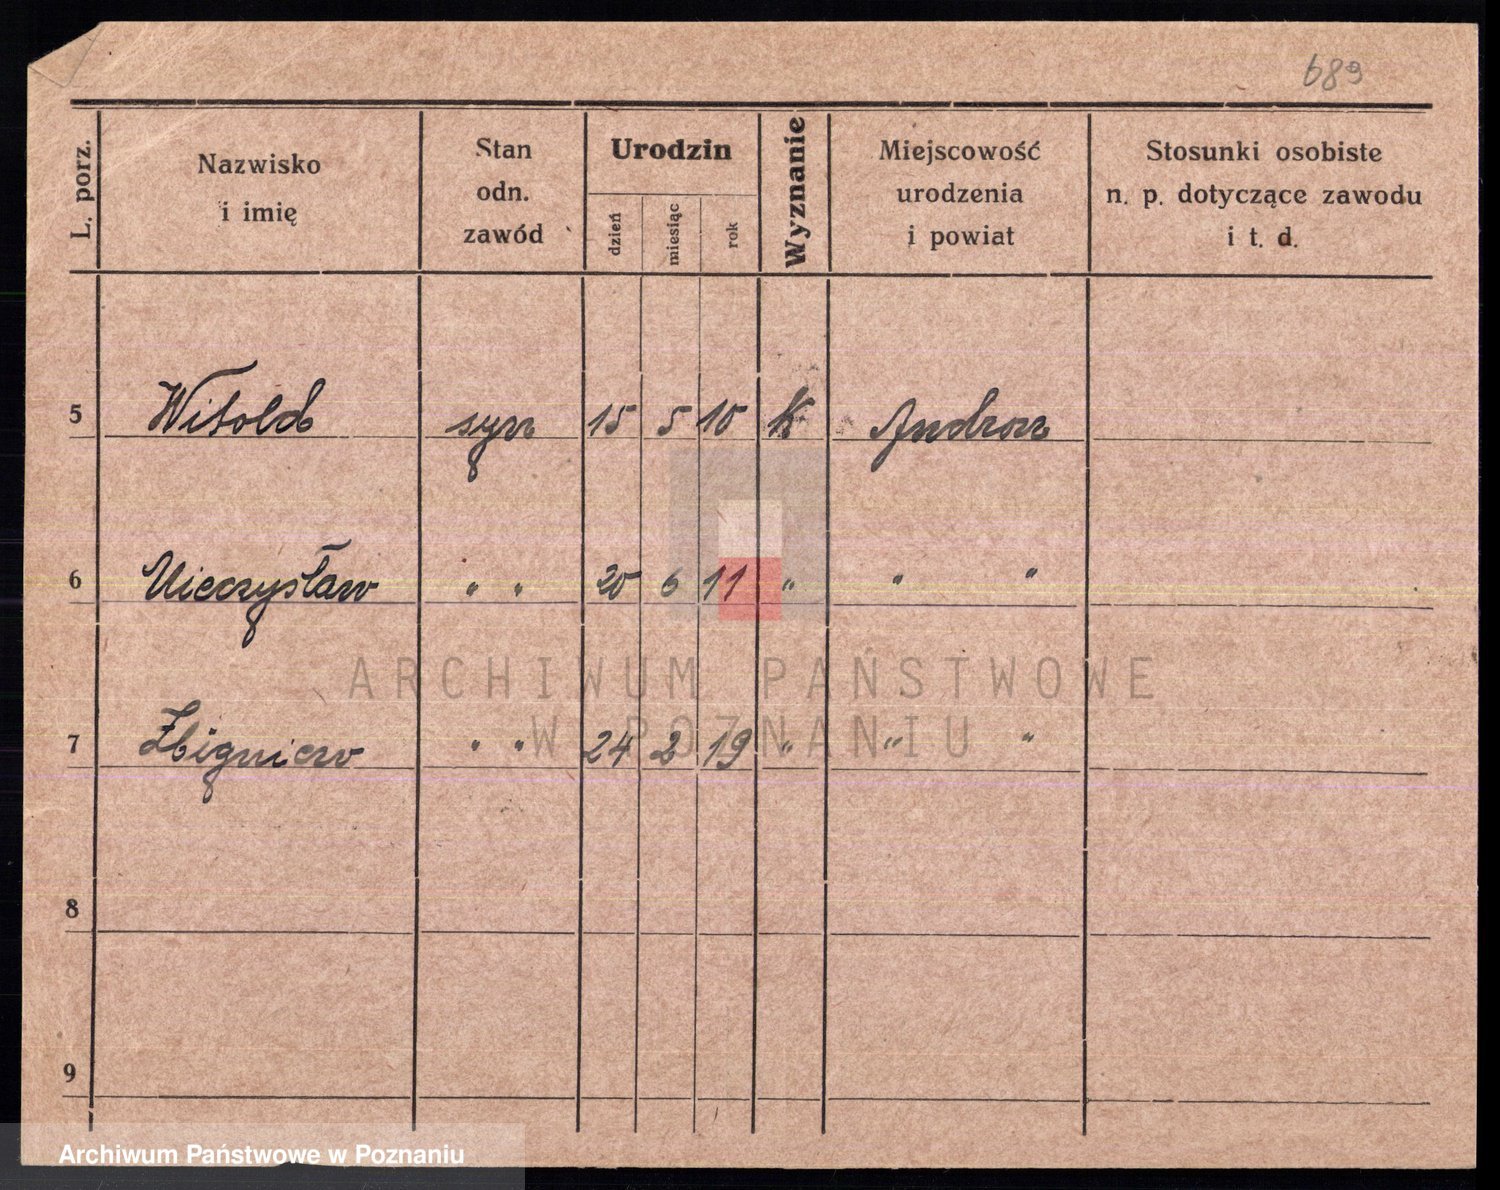 689
L. porz.
Nazwisko
i imię
Stan
odn.
zawód
Urodzin
dzień
miesiąc
rok
Wyznanie
Miejscowość
urodzenia
i powiat
Stosunki osobiste
n. p. dotyczące zawodu
i t. d.
5 Witold syn 15 5 10 K
6 Mieczysław " " 20 6 11 " " "
7 Zbigniew " " 24 2 19 " " "
8
9
ARCHIWUM PAŃSTWOWE
W POZNANIU
Archiwum Państwowe w Poznaniu